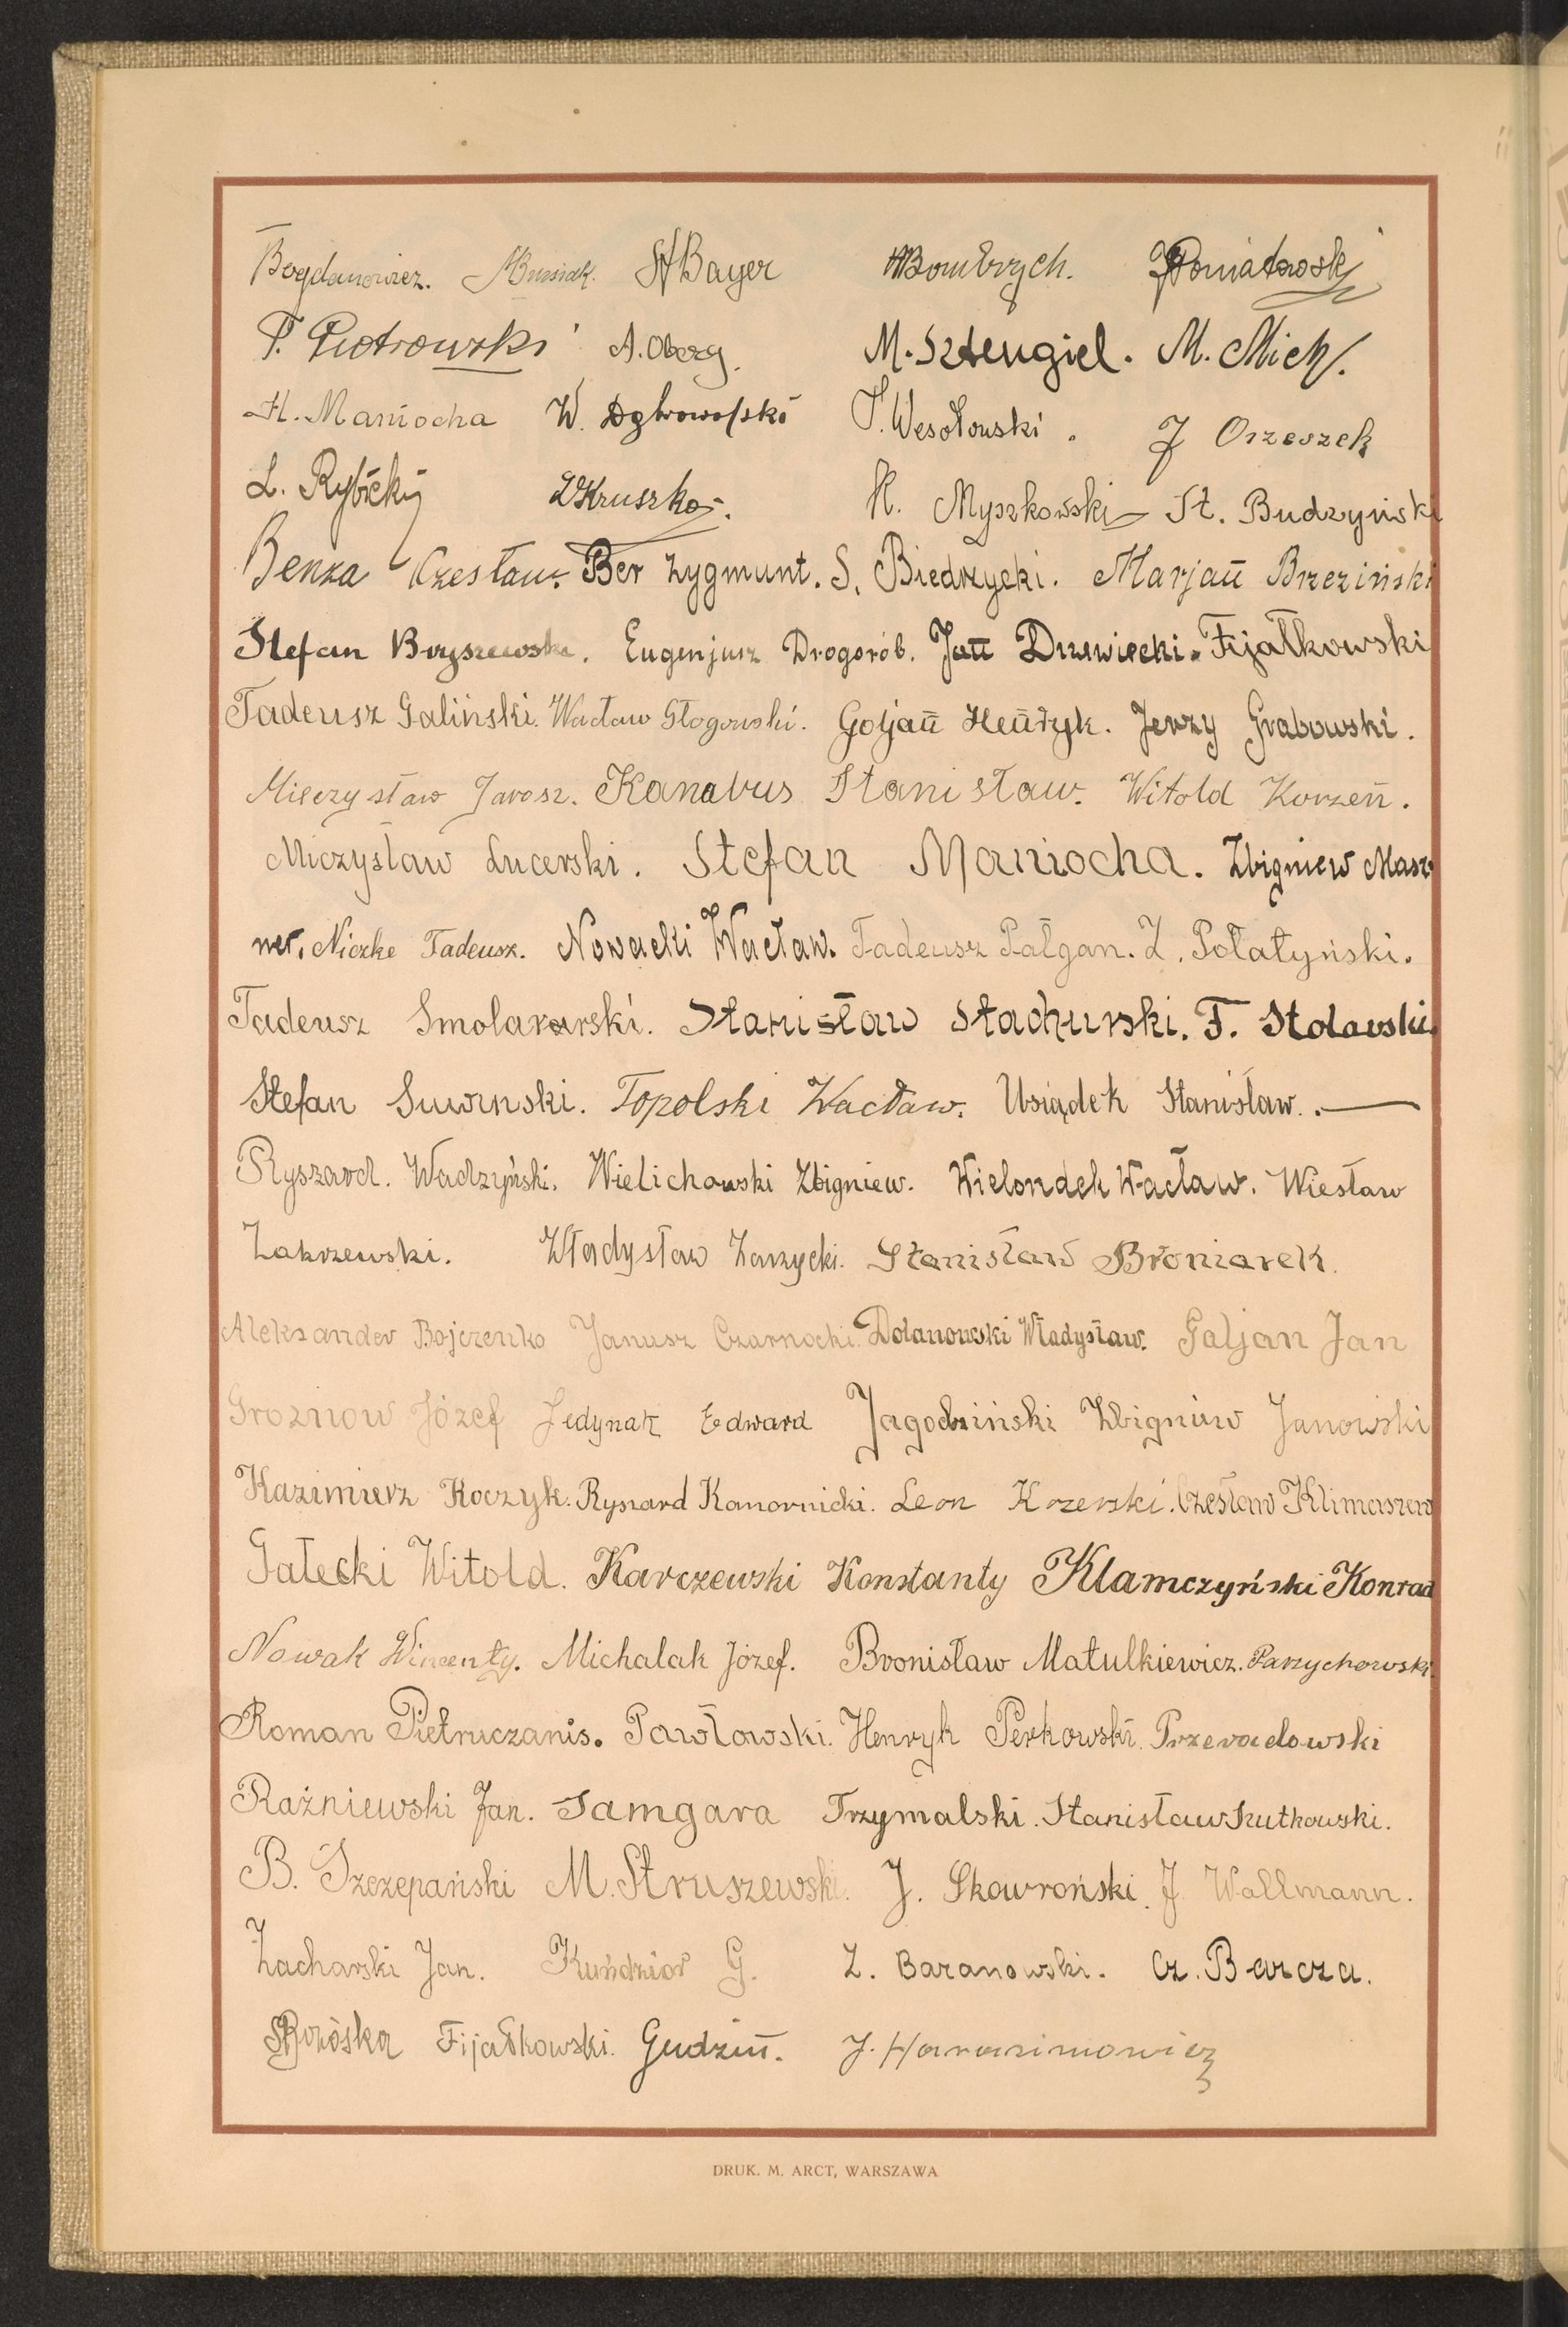 Bogdanowicz. St Bayer Bombrych. J Poniatowski
P. Piotrowski A. Oberg. M. Sztengiel. M. Mich.
H. Maniocha W. Dąbrowolski J. Wesołowski. J Orzeszek
L. Rybicki Kruszko. H. Myszkowski St. Budzyński
Benza Czesław. Ber Zygmunt. S. Biedrzycki. Marjan Brzeziński
Stefan Bryszewski. Eugenjusz Drogorób. Jan Drzewiecki. Fijałkowski
Tadeusz Galiński. Wacław Głogowski. Goljan Henryk. Jerzy Grabowski.
Mieczysław Jarosz. Kanabus Stanisław. Witold Korzeń.
Mieczysław Lucerski. Stefan Maniocha. Zbigniew Masz
ner, Niczke Tadeusz. Nowacki Wacław. Tadeusz Palgan. Z. Połatyński.
Tadeusz Smolarski. Stanisław Stachurski. F. Stolarski.
Stefan Suwinski. Topolski Wacław. Usiądek Stanisław. —
Ryszard. Wadzyński. Wielichowski Zbigniew. Wielondek Wacław. Wiesław
Zakrzewski. Władysław Zarzycki. Stanisław Broniarek.
Aleksander Bojczenko Janusz Czarnocki. Dolanowski Władysław. Galjan Jan
Groznow Józef Jedynak Edward Jagodziński Zbigniew Janowski
Kazimierz Koczyk. Ryszard Komornicki. Leon Kozerski. Czesław Klimaszew
Gałecki Witold. Karczewski Konstanty Klamczyński Konrad
Nowak Wincenty. Michalak Józef. Bronisław Matulkiewicz. Parzychowski
Roman Pietruczanis. Pawłowski. Henryk Perkowski. Przeradowski
Raźniewski Jan. Samgara Trzymalski. Stanisław Szutkowski.
B. Szczepański M. Struszewski. J. Skowroński. J. Wallmann.
Zacharski Jan. Kuńdzior G. Z. Baranowski. Cz. Barcza.
Brzóska Fijałkowski. Gudzin. J. Harasimowicz
DRUK. M. ARCT, WARSZAWA